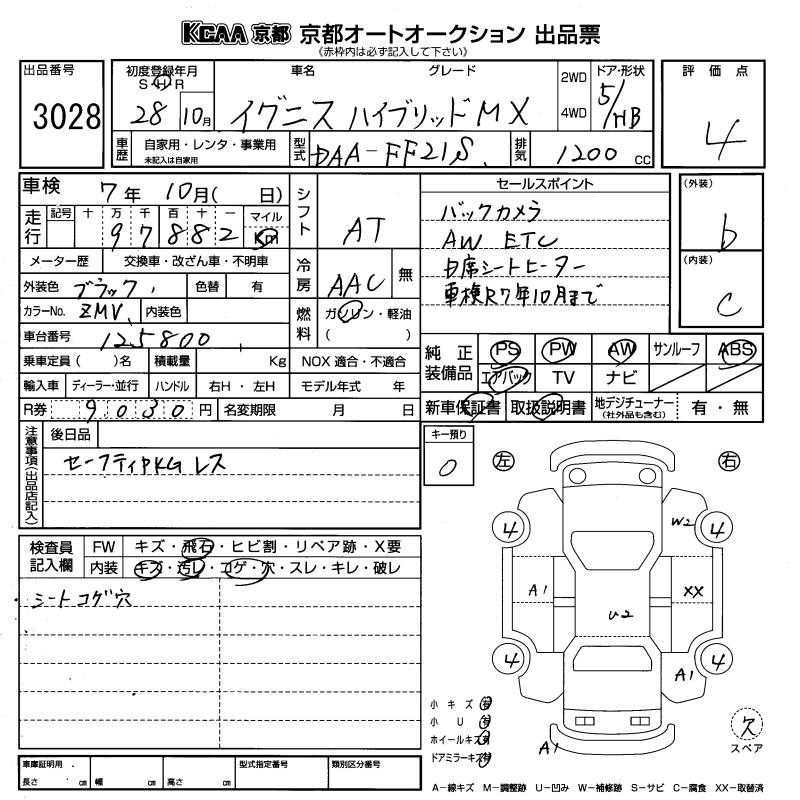 KCAA 京都 京都オートオークション 出品票
《赤枠内は必ず記入して下さい》
出品番号
3028
初度登録年月
S H R
28 10月
車名 グレード
イグニス ハイブリッドMX
2WD
4WD
ドア・形状
5/HB
評価点
4
車歴
自家用・レンタ・事業用
未記入は自家用
型式
DAA-FF21S
排気
1200 cc
車検 7年 10月( 日)
走行
記号 十 万 千 百 十 一 マイル
9 7 8 8 2 Km
メーター歴 交換車・改ざん車・不明車
外装色 ブラック 色替 有
カラーNo. ZMV 内装色
車台番号 125800
乗車定員( )名 積載量 Kg NOX 適合・不適合
輸入車 ディーラー・並行 ハンドル 右H・左H モデル年式 年
R券 9030円 名変期限 月 日
シフト
AT
冷房
AAC 無
燃料
ガソリン・軽油
( )
セールスポイント
バックカメラ
AW ETC
D席シートヒーター
車検R7年10月まで
(外装)
b
(内装)
C
純正装備品
PS PW AW サンルーフ ABS
エアバック TV ナビ
新車保証書 取扱説明書 地デジチューナー(社外品も含む) 有・無
注意事項(出品店記入)
後日品
セーフティPKG レス
キー預り
0
検査員記入欄
FW キズ・飛石・ヒビ割・リペア跡・X要
内装 キズ・汚レ・コゲ・穴・スレ・キレ・破レ
シートコゲ穴
左 右
4 W2 4
A1 XX
U2
4 A1 4
A1
小キズ 有
小U 有
ホイールキズ 有
ドアミラーキズ 有
欠
スペア
車庫証明用
長さ cm 幅 cm 高さ cm
型式指定番号 類別区分番号
A−線キズ M−調整跡 U−凹み W−補修跡 S−サビ C−腐食 XX−取替済